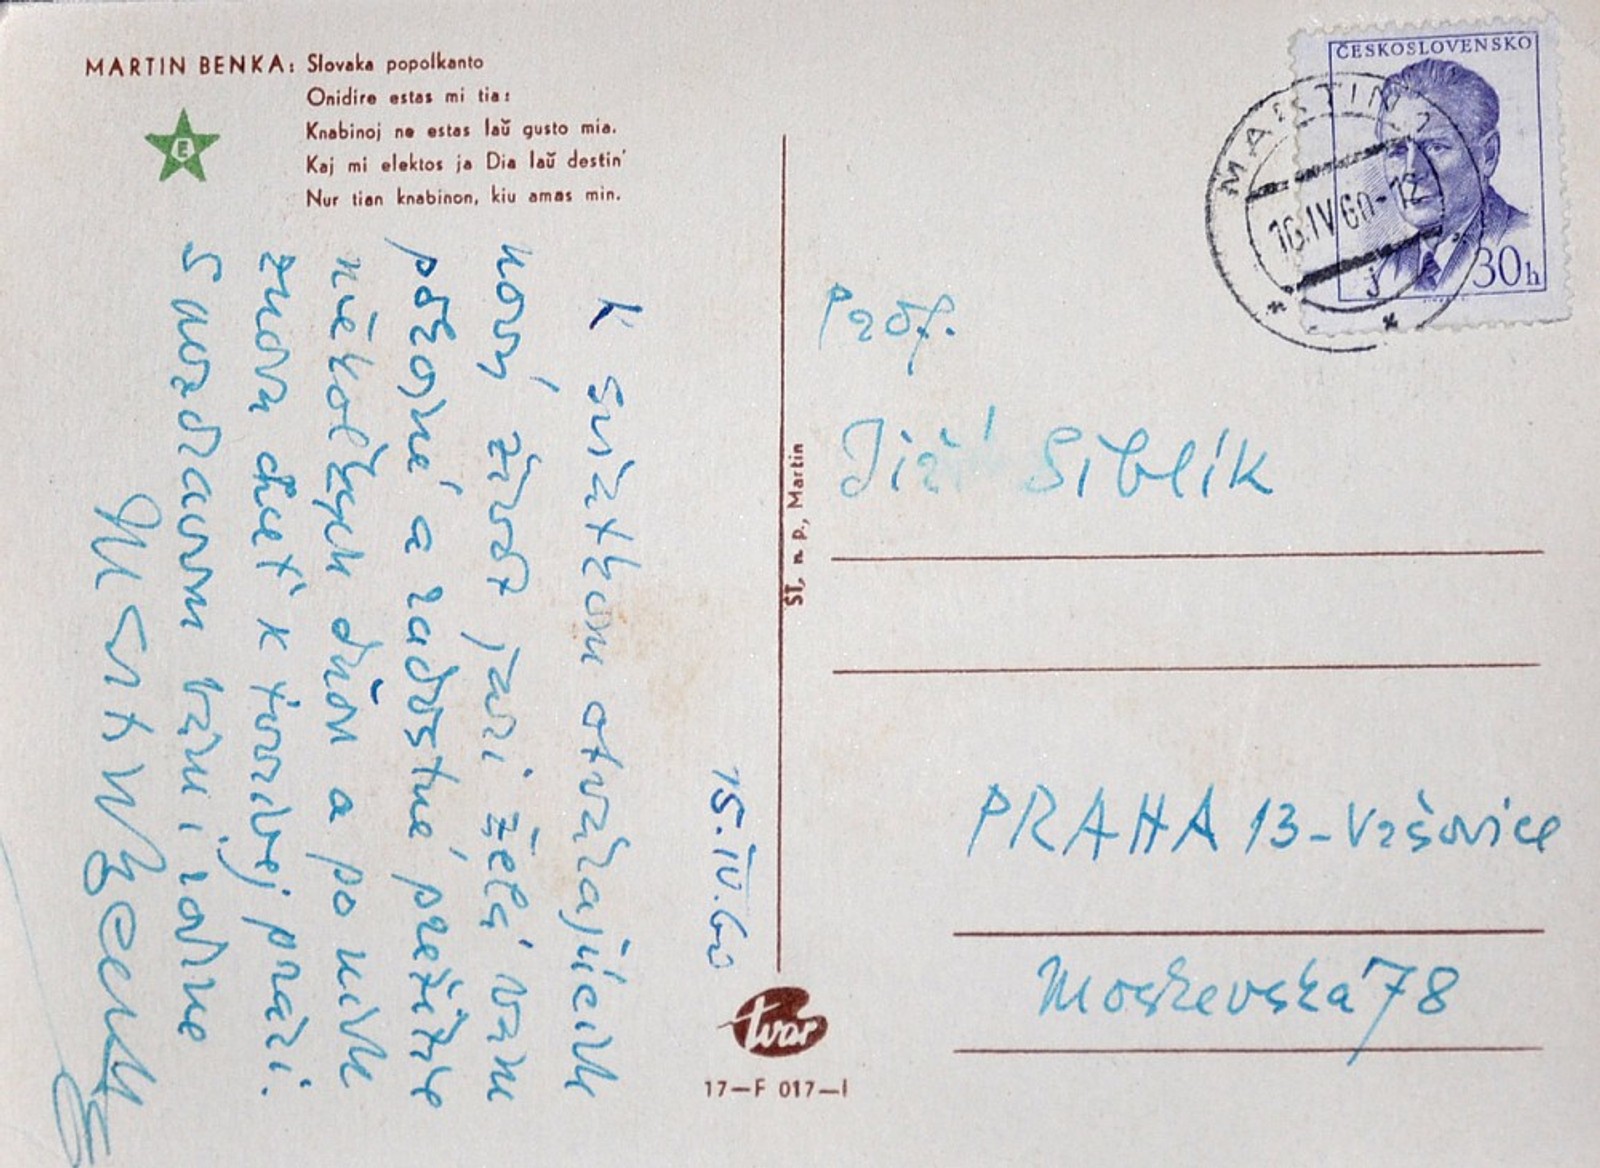 MARTIN BENKA: Slovaka popolkanto
Onidire estas mi tia:
Knabinoj ne estas laŭ gusto mia.
Kaj mi elektos ja Dia laŭ destin'
Nur tian knabinon, kiu amas min.
E
15.IV.60
K sviatkom otvárajúcich
nový život jari želá Vám
pokojné a radostné prežitie
niekoľkých dňov a po nich
znovu chuť k tvorivej práci.
S pozdravom Vám i rodine
Martin Benka
ŠT. n. p., Martin
tvar
17—F 017—I
ČESKOSLOVENSKO
30h
MARTIN 1
16.IV 60-12
J
Prof.
Jiří Siblík
PRAHA 13-Vršovice
Moskevská 78